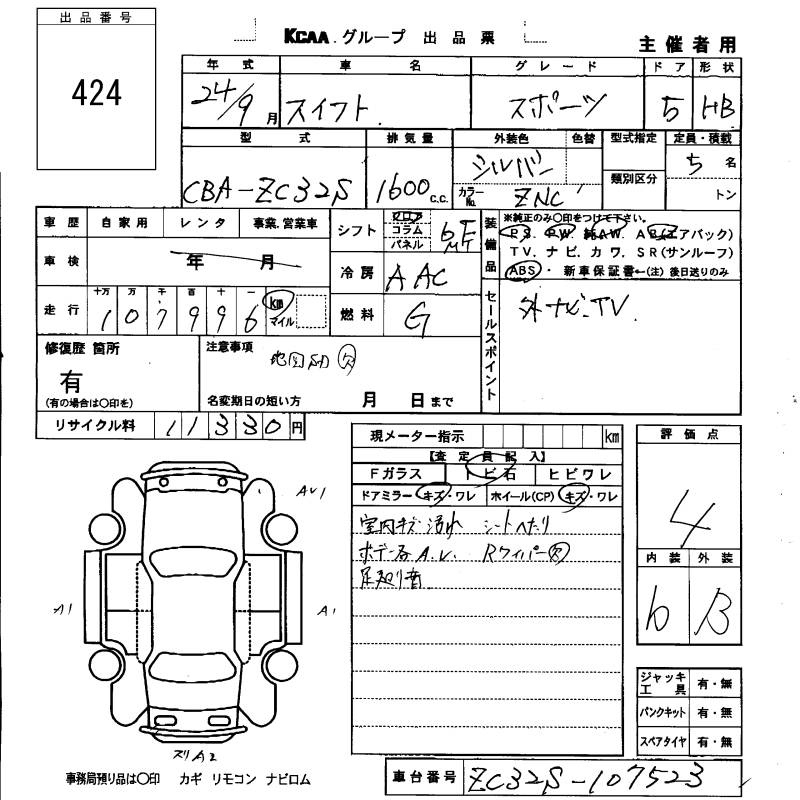 出品番号
424
KCAA グループ 出品票
主催者用
年式 車名 グレード ドア 形状
24/9月 スイフト スポーツ 5 HB
型式 排気量 外装色 色替 型式指定 定員・積載
CBA-ZC32S 1600 c.c. シルバー 5名
カラーNo. ZNC 類別区分 トン
車歴 自家用 レンタ 事業.営業車
シフト フロア コラム パネル 6F MT
装備品 ※純正のみ○印をつけて下さい。
PS. PW. 純AW. AB(エアバック)
TV. ナビ. カワ. SR(サンルーフ)
ABS・新車保証書←(注)後日送りのみ
車検 年 月
冷房 AAC
走行 十万 万 千 百 十 一
107996 km マイル
燃料 G
セールスポイント
外ナビ.TV.
修復歴 箇所
有
(有の場合は○印を)
注意事項
名変期日の短い方 月 日まで
リサイクル料 11330円
現メーター指示 km
【査定員記入】
Fガラス トビ石 ヒビワレ
ドアミラー キズ・ワレ ホイール(CP) キズ・ワレ
室内キズ・汚れ シートへたり
ボデー各A.U. Rワイパー欠
足廻り音
評価点
4
内装 外装
b B
AU1
A1 A1
スリA2
ジャッキ工具 有・無
パンクキット 有・無
スペアタイヤ 有・無
事務局預り品は○印 カギ リモコン ナビロム
車台番号 ZC32S-107523